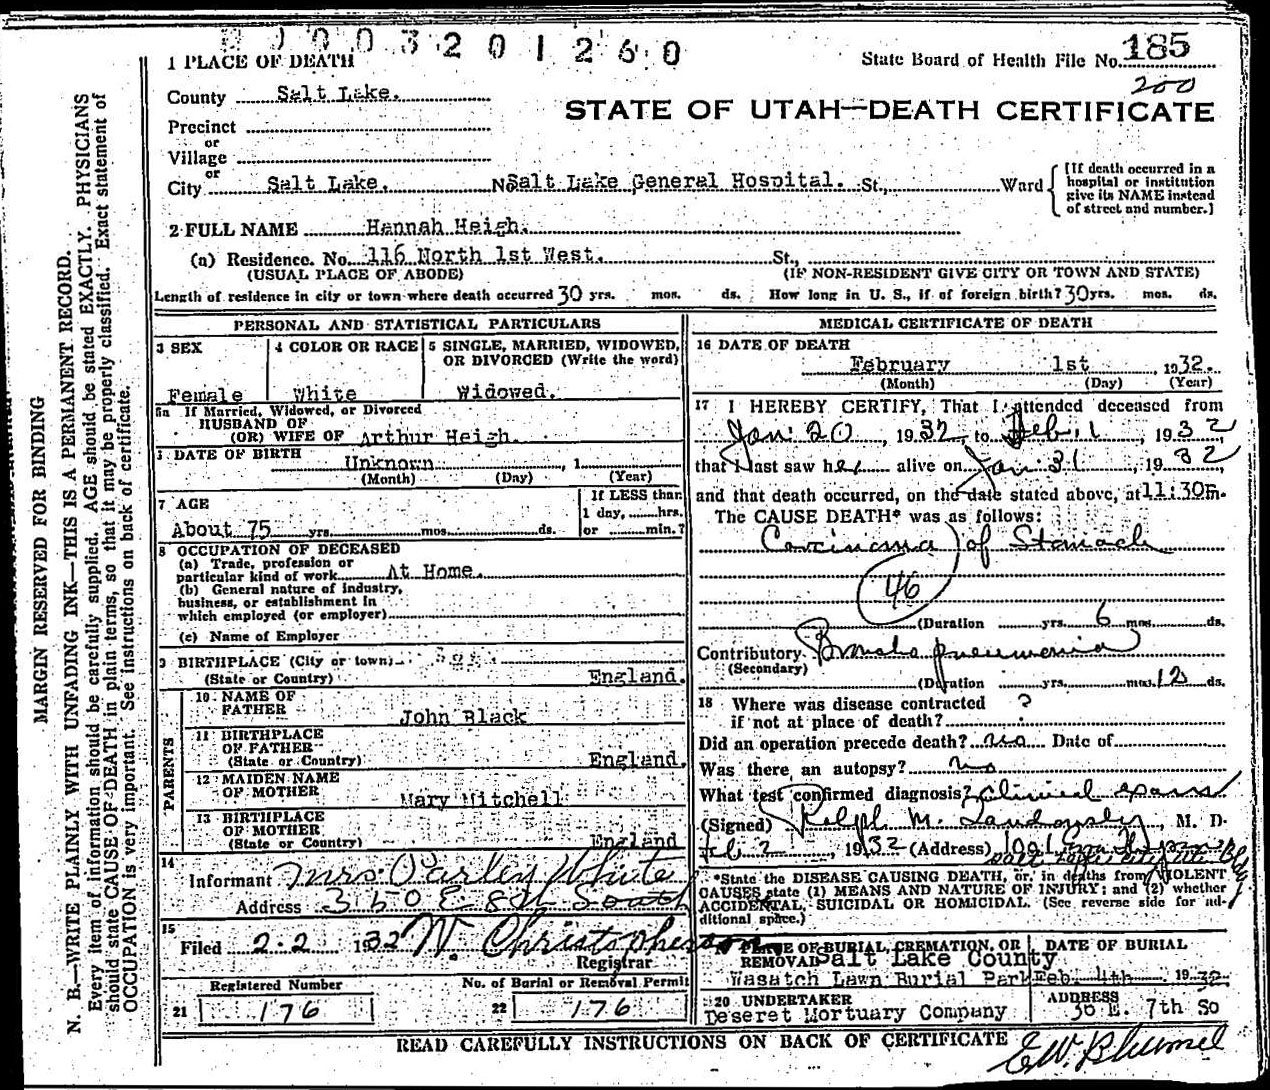 0003201260
1 PLACE OF DEATH
State Board of Health File No. 185
200
County Salt Lake.
STATE OF UTAH—DEATH CERTIFICATE
Precinct
or
Village
or
City Salt Lake. No Salt Lake General Hospital. St., Ward
[If death occurred in a
hospital or institution
give its NAME instead
of street and number.]
2 FULL NAME Hannah Heigh.
(a) Residence. No. 116 North 1st West. St.,
(USUAL PLACE OF ABODE) (IF NON-RESIDENT GIVE CITY OR TOWN AND STATE)
Length of residence in city or town where death occurred 30 yrs. mos. ds. How long in U. S., if of foreign birth? 30 yrs. mos. ds.
PERSONAL AND STATISTICAL PARTICULARS
3 SEX
Female
4 COLOR OR RACE
White
5 SINGLE, MARRIED, WIDOWED,
OR DIVORCED (Write the word)
Widowed.
5a If Married, Widowed, or Divorced
HUSBAND OF
(OR) WIFE OF Arthur Heigh.
DATE OF BIRTH
Unknown , 1
(Month) (Day) (Year)
7 AGE
About 75 yrs. mos. ds.
If LESS than
1 day, hrs.
or min.?
8 OCCUPATION OF DECEASED
(a) Trade, profession or
particular kind of work At Home.
(b) General nature of industry,
business, or establishment in
which employed (or employer)
(c) Name of Employer
9 BIRTHPLACE (City or town)
(State or Country) England.
PARENTS
10 NAME OF
FATHER
John Black
11 BIRTHPLACE
OF FATHER
(State or Country) England.
12 MAIDEN NAME
OF MOTHER
Mary Mitchell
13 BIRTHPLACE
OF MOTHER
(State or Country) England
14
Informant Mrs Parley White
Address 360 E 8th South
15
Filed 2-2 1932 W. Christopherson
Registrar
Registered Number
21 176
No. of Burial or Removal Permit
22 176
MEDICAL CERTIFICATE OF DEATH
16 DATE OF DEATH
February 1st , 1932.
(Month) (Day) (Year)
17 I HEREBY CERTIFY, That I attended deceased from
Jan. 20 , 1932, to Feb. 1 , 1932
that I last saw her alive on Jan. 31 , 1932
and that death occurred, on the date stated above, at 11:30 m.
The CAUSE DEATH* was as follows:
Carcinoma of Stomach
46
(Duration yrs. 6 mos. ds.
Contributory Broncho pneumonia
(Secondary)
(Duration yrs. mos. 12 ds.
18 Where was disease contracted
if not at place of death? ?
Did an operation precede death? no Date of
Was there an autopsy? no
What test confirmed diagnosis? Clinical exam
(Signed) Ralph M. , M. D.
Feb 2 , 1932 (Address)
Salt Lake City Ut
*State the DISEASE CAUSING DEATH, or in deaths from VIOLENT
CAUSES state (1) MEANS AND NATURE OF INJURY; and (2) whether
ACCIDENTAL, SUICIDAL OR HOMICIDAL. (See reverse side for ad-
ditional space.)
PLACE OF BURIAL, CREMATION, OR
REMOVAL Salt Lake County
Wasatch Lawn Burial Park
DATE OF BURIAL
Feb. 4th 1932
20 UNDERTAKER
Deseret Mortuary Company
ADDRESS
36 E. 7th So
READ CAREFULLY INSTRUCTIONS ON BACK OF CERTIFICATE
MARGIN RESERVED FOR BINDING
N. B.—WRITE PLAINLY WITH UNFADING INK—THIS IS A PERMANENT RECORD.
Every item of information should be carefully supplied. AGE should be stated EXACTLY. PHYSICIANS
should state CAUSE OF DEATH in plain terms, so that it may be properly classified. Exact statement of
OCCUPATION is very important. See instructions on back of certificate.